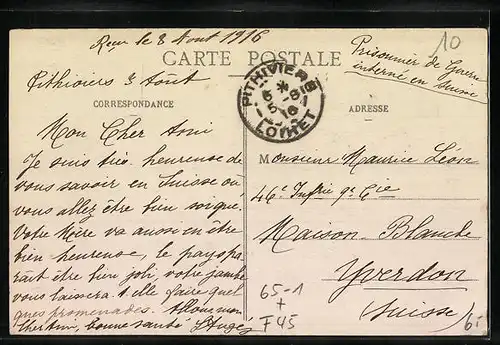 Reçu le 8 Aout 1916
CARTE POSTALE
Prisonnier de Guerre
interné en Suisse
10
PITHIVIERS
5-8
16
LOIRET
Pithiviers 3 Août
CORRESPONDANCE
ADRESSE
Mon Cher Ami
Je suis très heureuse de
vous savoir en Suisse où
vous allez être bien soigné.
Votre Mère va aussi en être
bien heureuse, le pays pa
raît être bien joli votre jambe
vous laissera t-elle faire quel
ques promenades. Allons mon
cher ami, bonne santé
Monsieur Maurice Léon
46e Infrie 9e Cie
Maison Blanche
Yverdon
(Suisse)
65-1
+
F45